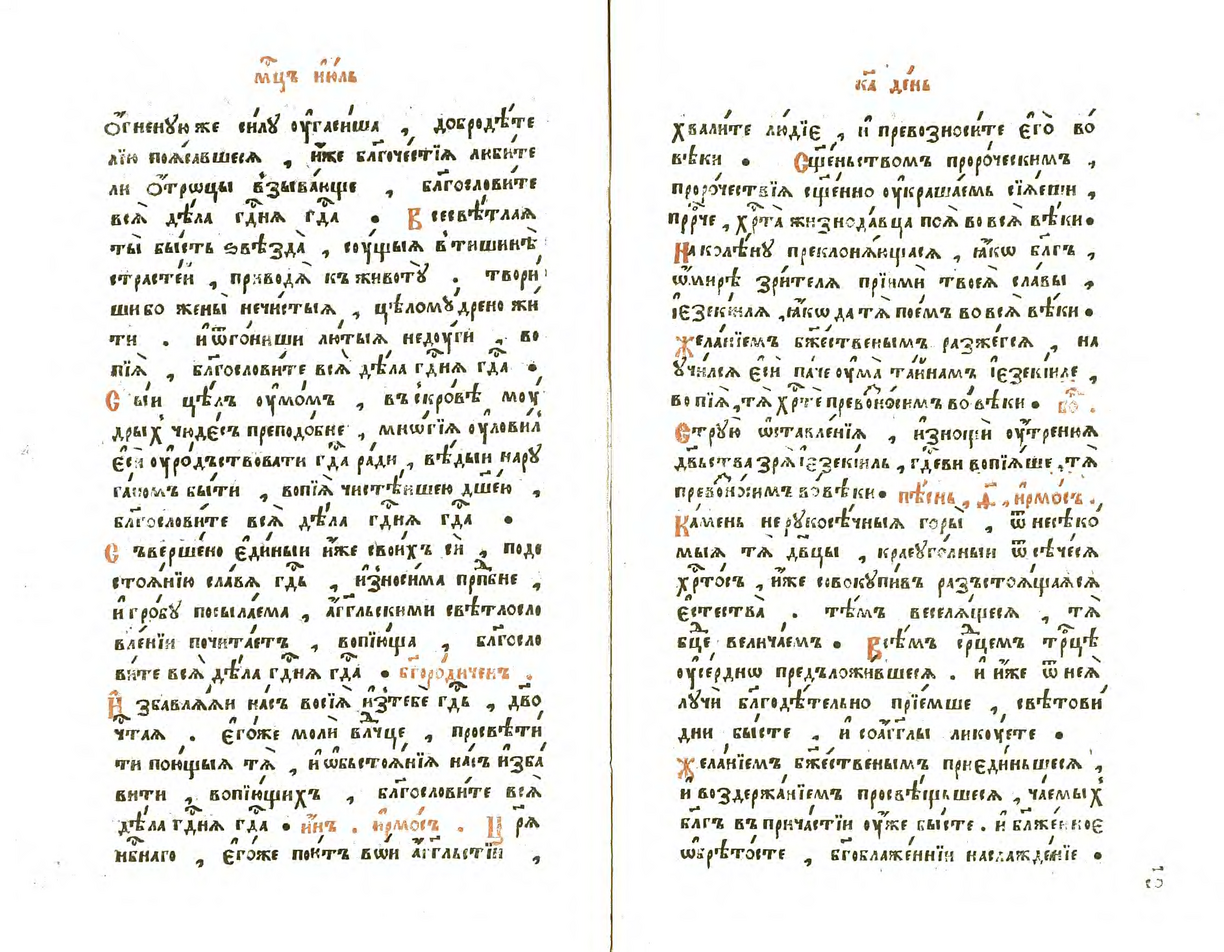 мⷭ҇цъ і҆ю́ль
Ѻ҆́гненꙋю же си́лꙋ ᲂу҆гаси́ша , добродѣ́те
лїю поѧ́савшесѧ , и҆̀же бл҃гоче́стїѧ люби́те
ли ѻ҆́троцы взыва́юще , бл҃гослови́те
всѧ̀ дѣ́ла гдⷭ҇нѧ гдⷭ҇а . Всесвѣ́тлаѧ
ты̀ бы́сть ѕвѣзда̀ , соу́щыѧ в тишинѣ̀
страсте́й , приводѧ̀ къ животꙋ̀ . твори́
ши бо жены̀ нечи́стыѧ , цѣломꙋ́дрено жи
ти . и҆ ѿго́ниши лю́тыѧ недоу́ги , во
пїѧ̀ , бл҃гослови́те всѧ̀ дѣ́ла гдⷭ҇нѧ гдⷭ҇а .
Сы́и цѣ́лъ ᲂу҆мо́мъ , въ скро́вѣ моу́
дрыхъ чюде́съ преподо́бне , мно́гїѧ ᲂу҆лови́лъ
є҆сѝ ᲂу҆ро́дъствовати гдⷭ҇а ра́ди , вѣ́дыи нарꙋ
га́емъ бы́ти , вопїѧ̀ чистѣ́йшею дш҃е́ю ,
бл҃гослови́те всѧ̀ дѣ́ла гдⷭ҇нѧ гдⷭ҇а .
Съверше́но є҆ди́ныи и҆̀же свои́хъ сѝ , подо
стоѧ́нїю сла́вѧ гдⷭ҇ь , и҆зно́сима прпⷣбне ,
и҆ гро́бꙋ посыла́ема , а҆́гг҃льскими свѣтлосло
вле́нїи почита́етъ , вопїю́ща , бл҃госло
ви́те всѧ̀ дѣ́ла гдⷭ҇нѧ гдⷭ҇а . бг҃оро́диченъ .
И҆збавлѧ́ѧи на́съ восїѧ̀ и҆з тебѐ гдⷭ҇ь , дв҃о
чтⷭ҇аѧ . є҆го́же молѝ влⷣчце , просвѣти́
ти пою́щыѧ тѧ̀ , и҆ ѡ҆бьстоѧ́нїѧ на́съ и҆зба
вити , вопїю́щихъ , бл҃гослови́те всѧ̀
дѣ́ла гдⷭ҇нѧ гдⷭ҇а . и҆́нъ . і҆рмо́съ . Црѧ̀
нбⷭ҇наго , є҆го́же пою́тъ во́и а҆́гг҃льстїи ,
ка҃ де́нь
хвали́те лю́дїє , и҆ превозноси́те є҆го̀ во
вѣ́ки . Сщ҃е́ньствомъ проро́ческимъ ,
проро́чествїѧ сщ҃е́нно ᲂу҆краша́емь сїѧ́еши ,
прⷪ҇рче , хрⷭ҇та̀ жизнода́вца поѧ̀ во всѧ̀ вѣ́ки .
На колѣ́нꙋ преклонѧ́ющасѧ , ꙗ҆́кѡ бл҃гъ ,
ѡ҆ ми́рѣ зри́телѧ прїимѝ твоеѧ̀ сла́вы ,
і҆езеки́илѧ , ꙗ҆́кѡ да тѧ̀ пое́мъ во всѧ̀ вѣ́ки .
Жела́нїемъ бж҃е́ственымъ разже́гсѧ , на
ᲂу҆чи́лсѧ є҆сѝ па́че ᲂу҆ма̀ та́йнамъ і҆езекі́иле ,
вопїѧ̀ , тѧ̀ хрⷭ҇тѐ превозно́симъ во вѣ́ки . бо҃ .
Струю̀ ѡ҆ставле́нїѧ , и҆знощѝ ᲂу҆́тренѧ
двь҃ства зрѧ̀ і҆езекі́иль , гдⷭ҇еви вопїѧ́ше , тѧ̀
превозно́симъ во вѣ́ки . пѣ́снь , ѳ҃ , і҆рмо́съ .
Ка́мень нерꙋкосѣ́чныѧ горы̀ , ѿ несѣко́
мыѧ тѧ̀ дв҃цы , краеуго́лныи ѿсѣ́чесѧ
хрⷭ҇то́съ , и҆́же совокꙋпи́въ разъстоѧ́щаѧсѧ
є҆стества̀ . тѣ́мъ веселѧ́щесѧ , тѧ̀
бц҃е велича́емъ . Всѣ́мъ срⷣцемъ трⷪ҇цѣ
ᲂу҆се́рднѡ предъложи́вшесѧ . и҆ и҆̀же ѿ неѧ̀
лꙋчѝ бл҃годѣ́тельно прїе́мше , свѣтови́
дни бы́сте , и҆ со а҆́гг҃лы ликоу́ете .
Жела́нїемъ бж҃е́ственымъ приєди́ньшесѧ ,
и҆ воздержа́нїемъ просвѣ́щьшесѧ , ча́емыхъ
бл҃гъ въ прича́стїи ᲂу҆же бы́сте . и҆ бл҃же́нное
ѡ҆брѣто́сте , бг҃облаже́ннїи наслажде́нїе .